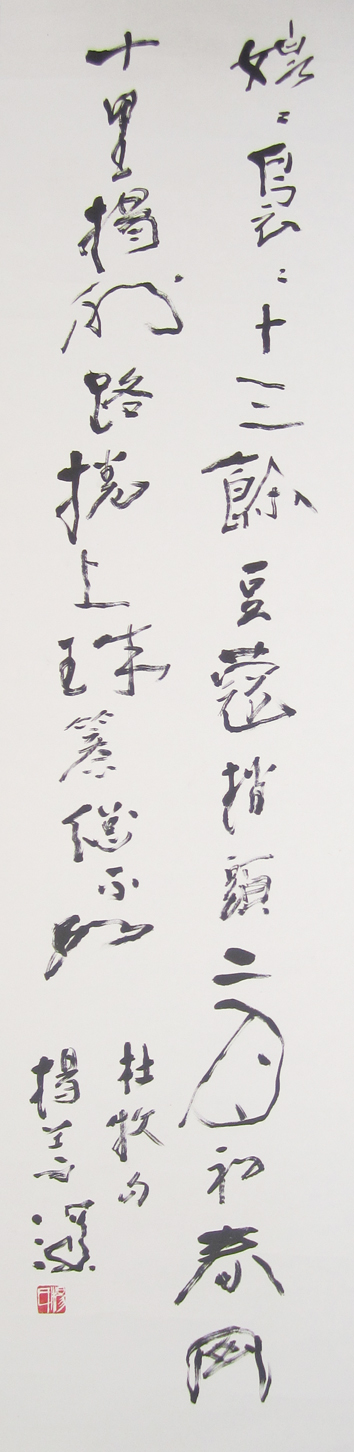 娉〻裊〻十三餘豆蔻梢頭二月初春风
十里揚州路捲上珠簾總不如
杜牧句
楊善深